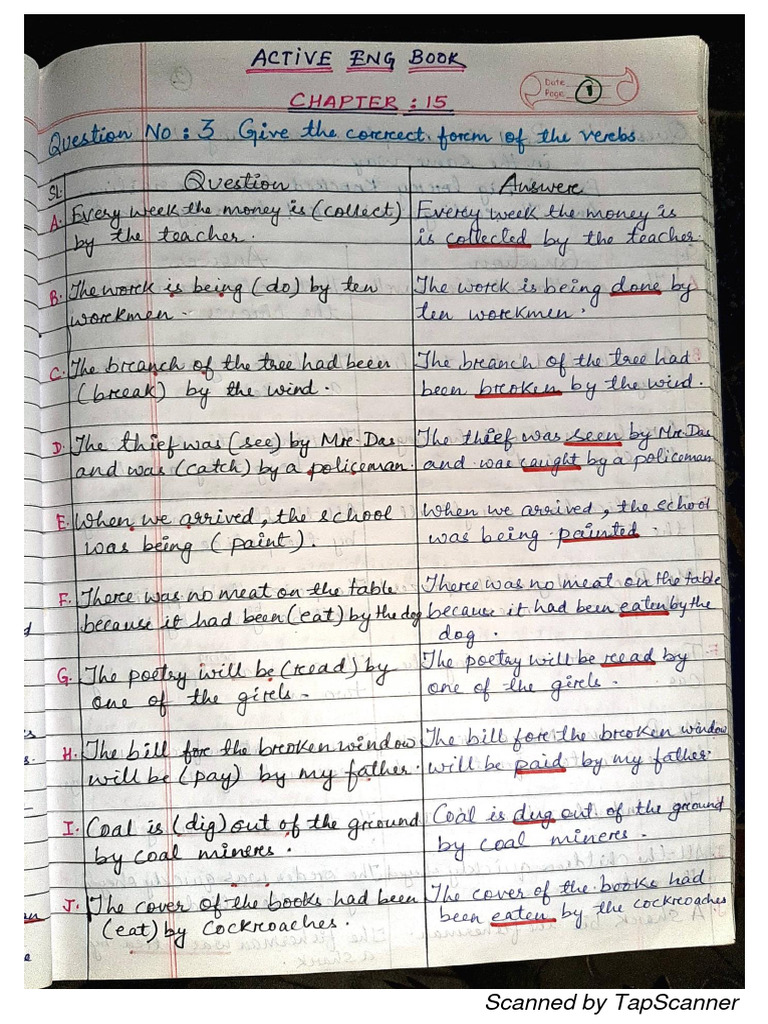 ACTIVE ENG BOOK
Date
Page 1
CHAPTER : 15
Question No : 3 Give the correct form of the verbs
SL. Question Answer
A. Every week the money is (collect)
by the teacher.
Every week the money is
is collected by the teacher.
B. The work is being (do) by ten
workmen.
The work is being done by
ten workmen.
C. The branch of the tree had been
(break) by the wind.
The branch of the tree had
been broken by the wind.
D. The thief was (see) by Mr. Das
and was (catch) by a policeman.
The thief was seen by Mr. Das
and was caught by a policeman
E. When we arrived, the school
was being (paint).
When we arrived, the school
was being painted.
F. There was no meat on the table
because it had been (eat) by the dog
There was no meat on the table
because it had been eaten by the
dog.
G. The poetry will be (read) by
one of the girls.
The poetry will be read by
one of the girls.
H. The bill for the broken window
will be (pay) by my father.
The bill for the broken window
will be paid by my father.
I. Coal is (dig) out of the ground
by coal miners.
Coal is dug out of the ground
by coal miners.
J. The cover of the books had been
(eat) by cockroaches.
The cover of the books had
been eaten by the cockroaches
Scanned by TapScanner